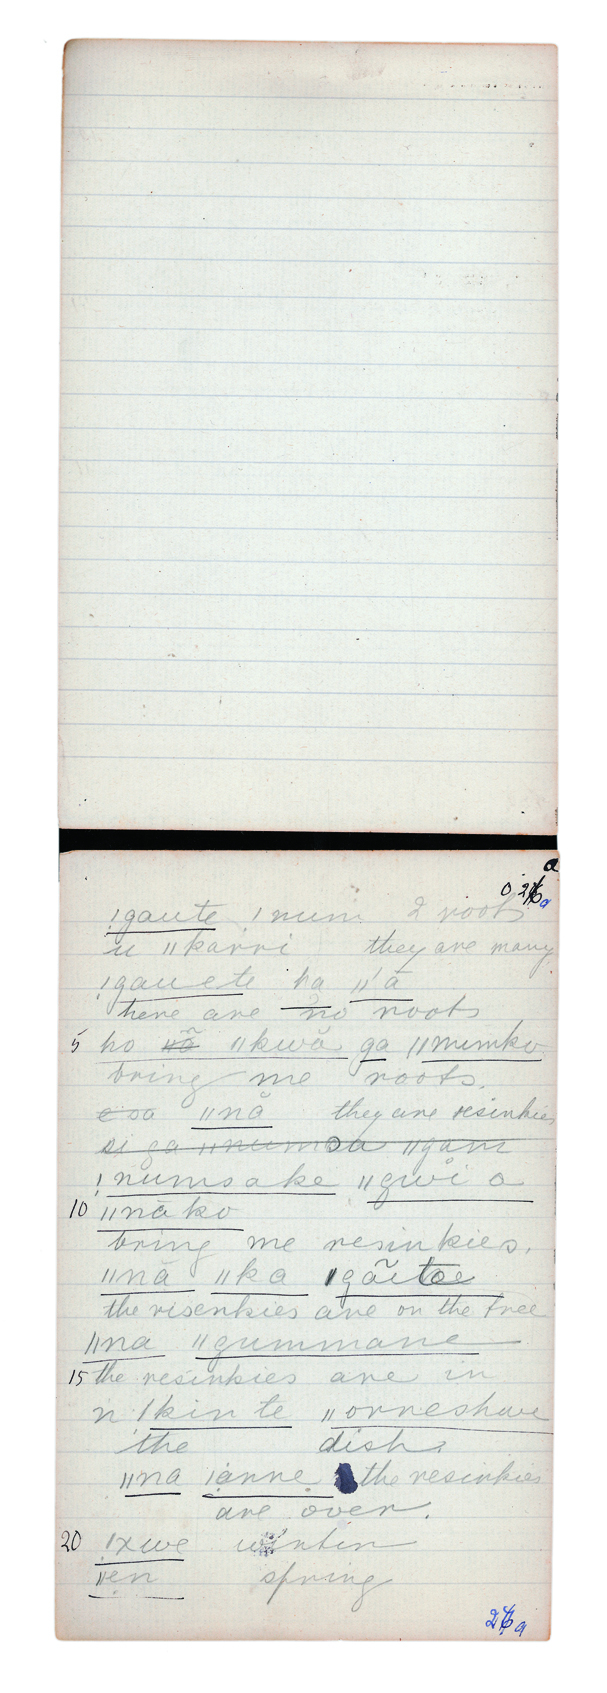 ǃgaute ǀnum 2 roots
u ǁkarri they are many
ǃgauete ha ǁ'ā
there are no roots
5 ho ǁkwā ga ǁnumko
bring me roots.
e sa ǁnā they are resinkies
si ga ǁnumsa ǁgam
ǃnumsake ǁgwi o
10 ǁnāko
bring me resinkies.
ǁnā ǁka
the risenkies are on the tree
ǁna ǁgummane
15 the resinkies are in
n ǀkin te ǁorreshave
the dish
ǁna ǀanne the resinkies
are over.
20 ǃxwe winter
ǁen spring
26 a